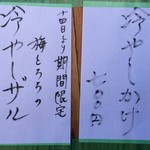 十四日より期間限定
梅とろろの
冷やしザル
冷やしかけ
七〇〇円